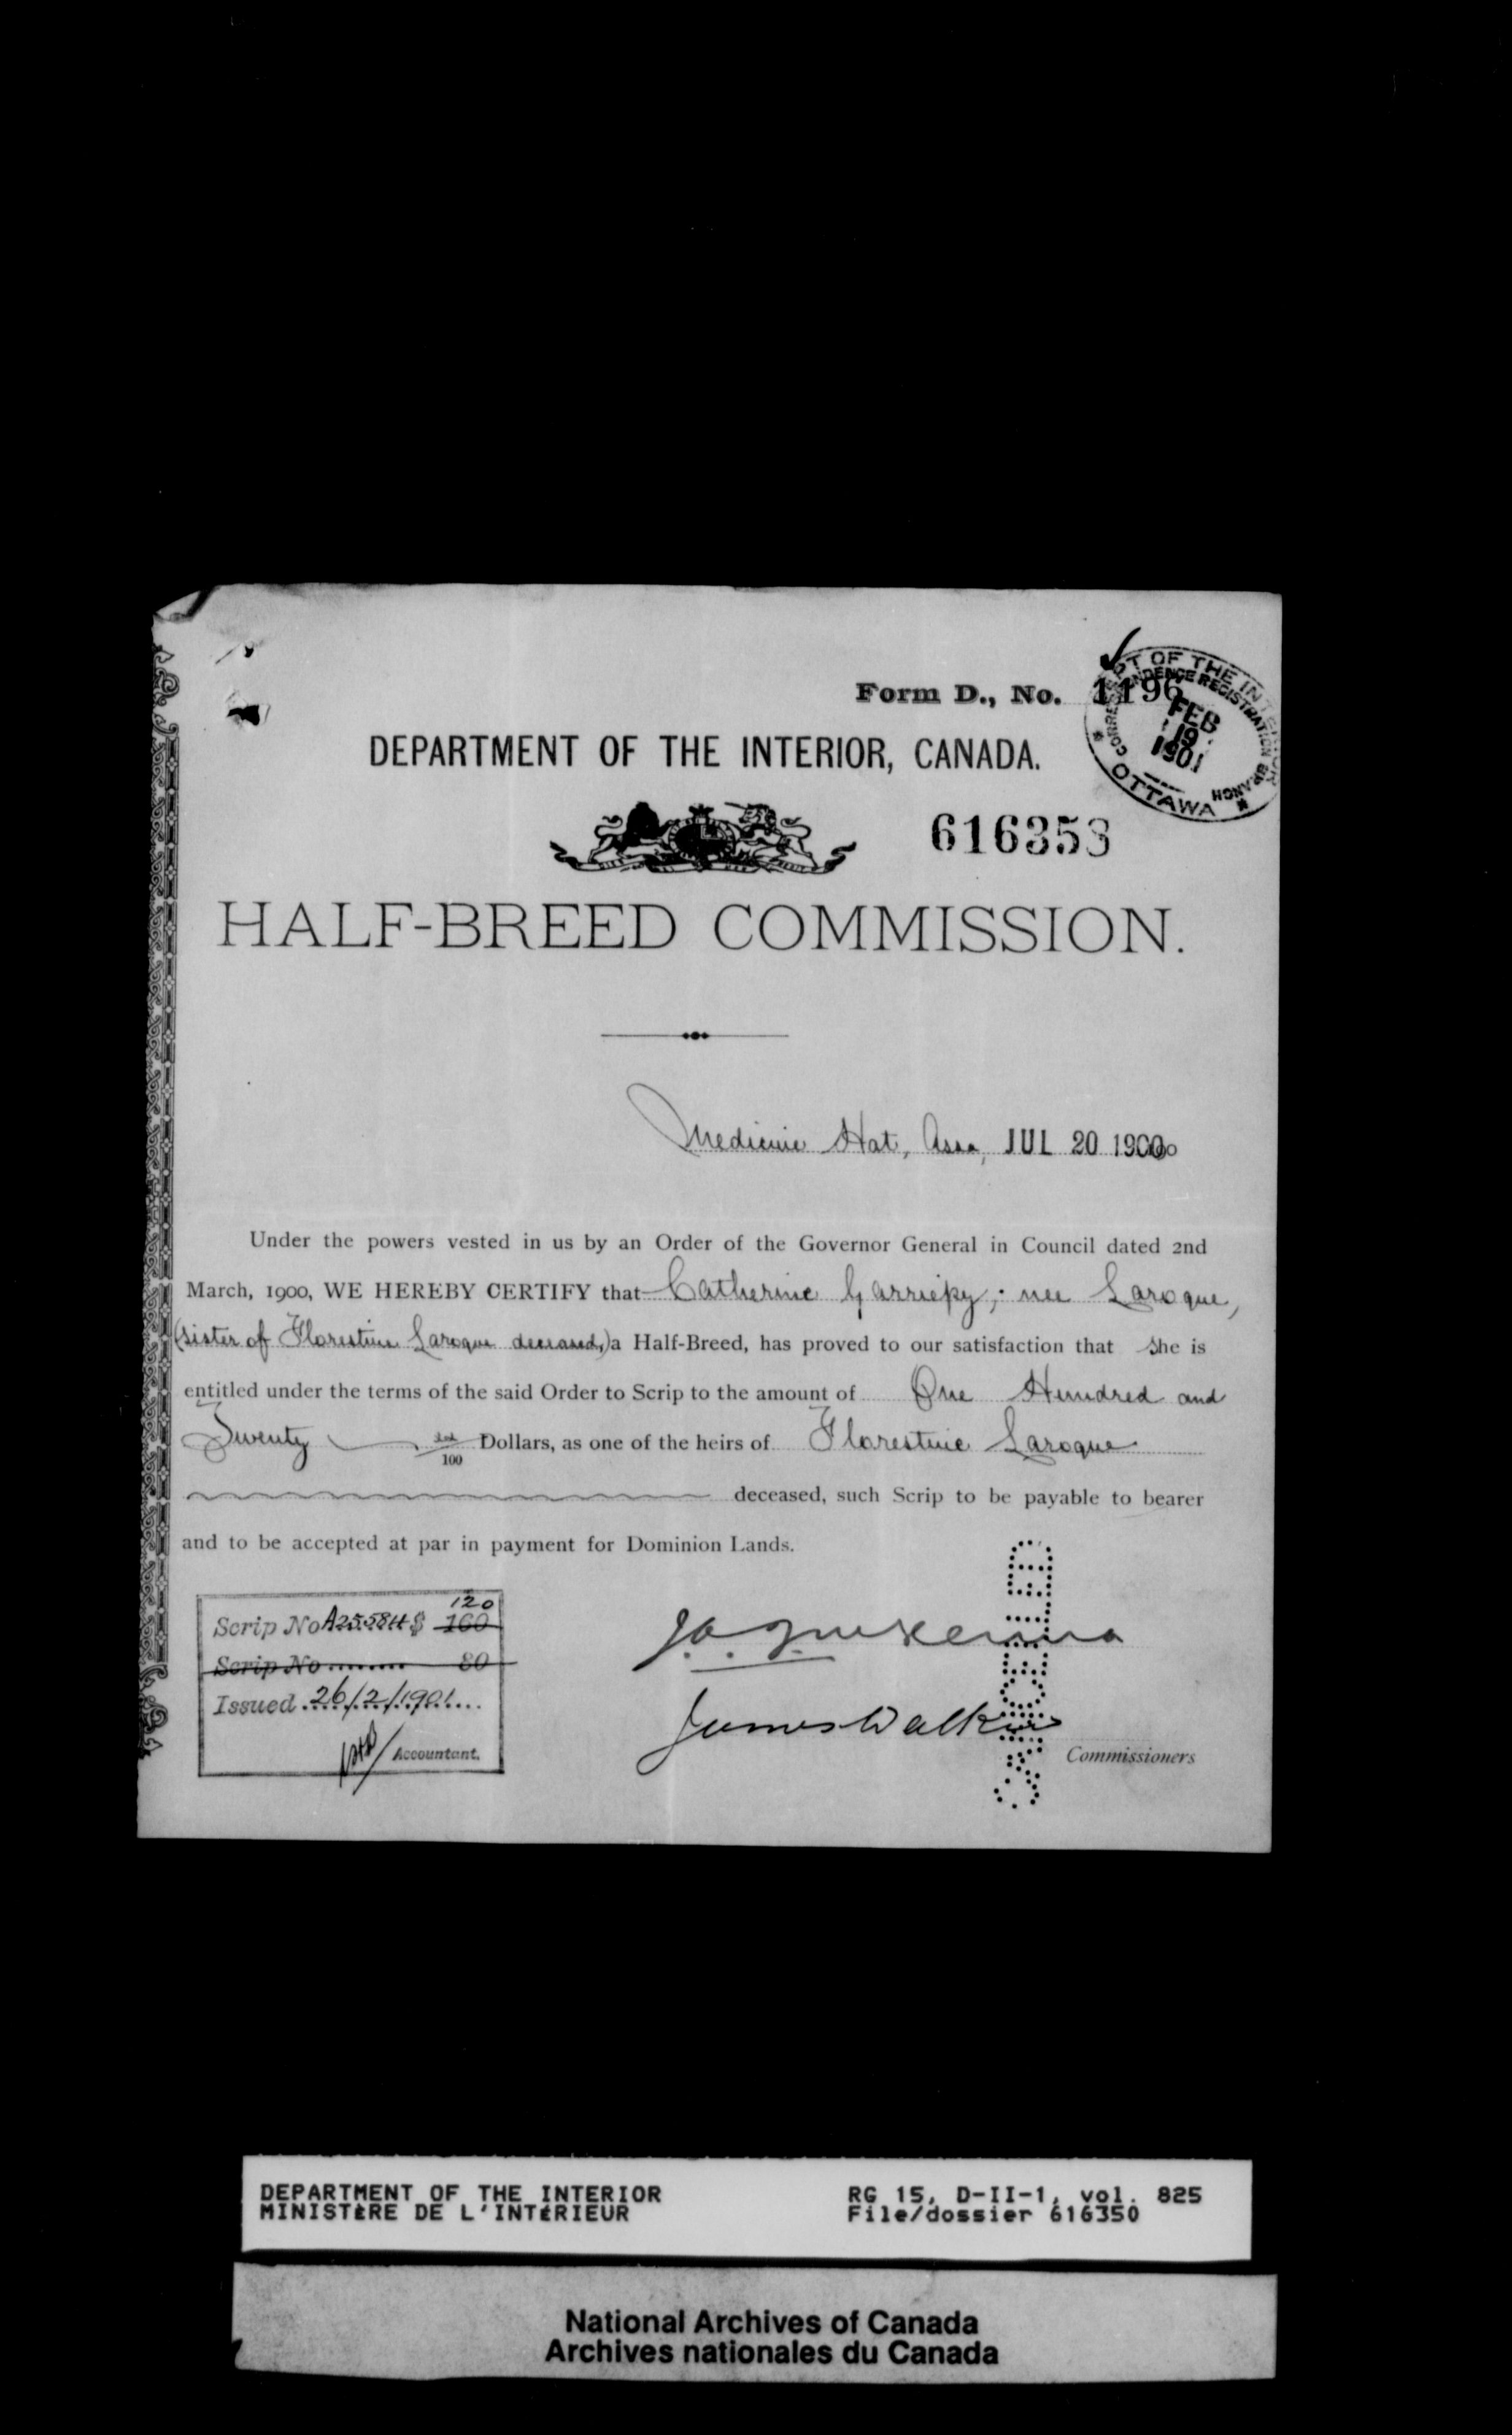 Form D., No. 1196
DEPT OF THE INTERIOR
CORRESPONDENCE REGISTRATION BRANCH
FEB
19
1901
OTTAWA
DEPARTMENT OF THE INTERIOR, CANADA.
616353
HALF-BREED COMMISSION.
Medicine Hat, Assa, JUL 20 1900
Under the powers vested in us by an Order of the Governor General in Council dated 2nd
March, 1900, WE HEREBY CERTIFY that Catherine Garriepy, nee Laroque,
(sister of Florestine Laroque deceased,) a Half-Breed, has proved to our satisfaction that she is
entitled under the terms of the said Order to Scrip to the amount of One Hundred and
Twenty /100 Dollars, as one of the heirs of Florestine Laroque
deceased, such Scrip to be payable to bearer
and to be accepted at par in payment for Dominion Lands.
120
Scrip No A25584 $ 160
Scrip No ........ 80
Issued 26/2/1901
Accountant.
J.A. McKenna
James Walker
Commissioners
DEPARTMENT OF THE INTERIOR
MINISTÈRE DE L'INTÉRIEUR
RG 15, D-II-1, vol. 825
File/dossier 616350
National Archives of Canada
Archives nationales du Canada